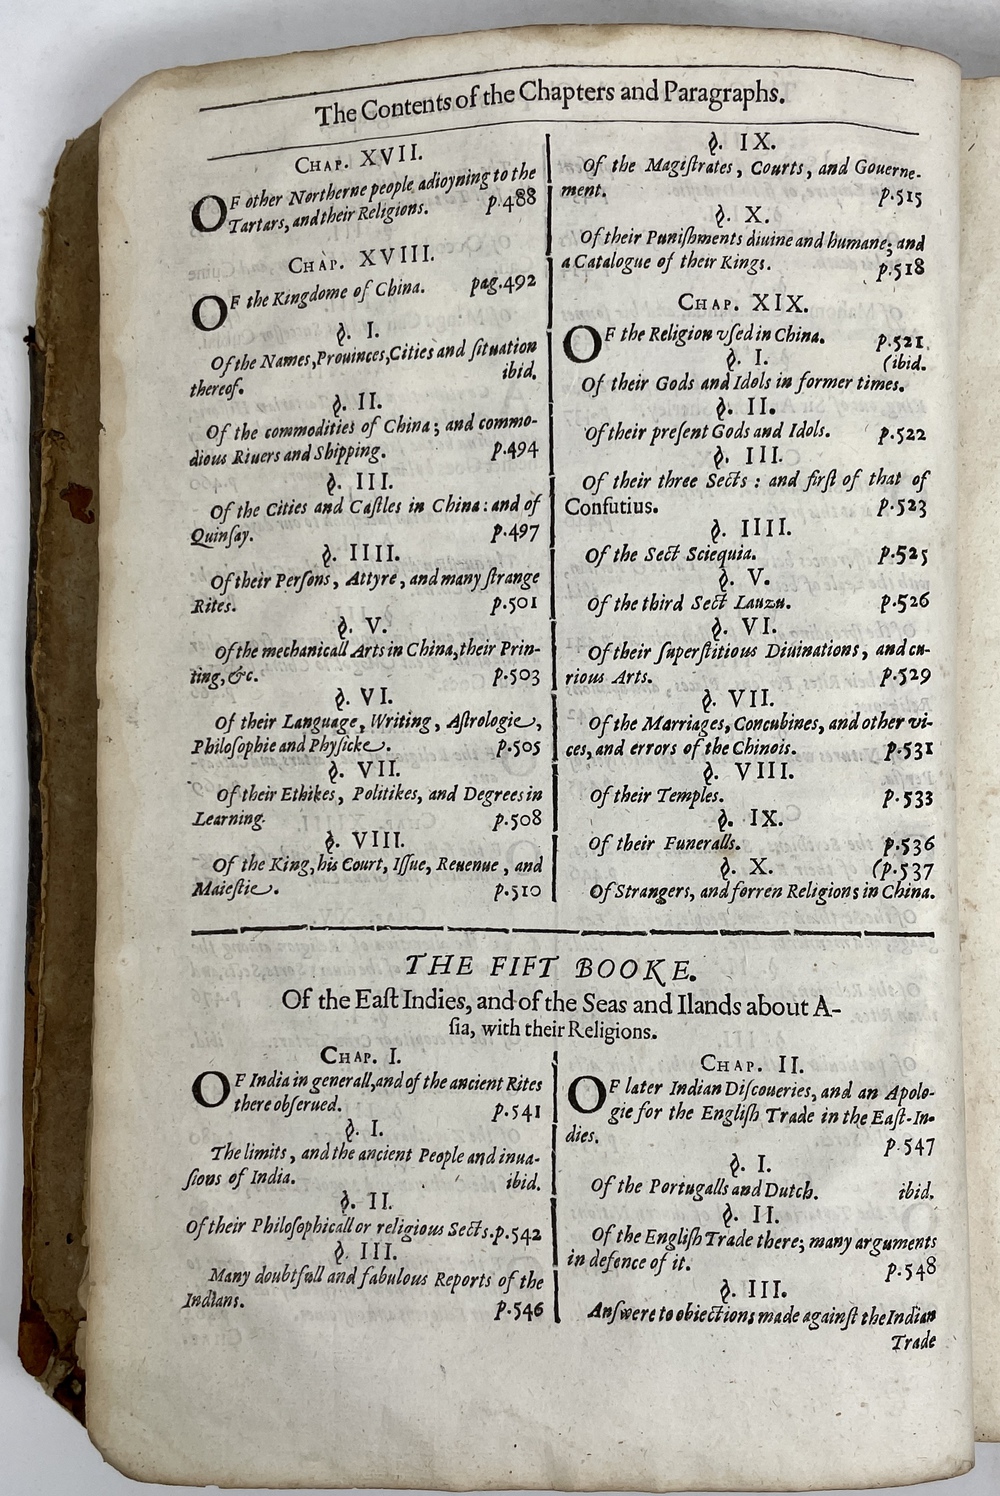 The Contents of the Chapters and Paragraphs.
CHAP. XVII.
OF other Northerne people adioyning to the
Tartars, and their Religions. p.488
CHAP. XVIII.
OF the Kingdome of China. pag.492
§. I.
Of the Names, Prouinces, Cities and ſituation
thereof. ibid.
§. II.
Of the commodities of China; and commo-
dious Riuers and Shipping. p.494
§. III.
Of the Cities and Caſtles in China: and of
Quinſay. p.497
§. IIII.
Of their Perſons, Attyre, and many ſtrange
Rites. p.501
§. V.
Of the mechanicall Arts in China, their Prin-
ting, &c. p.503
§. VI.
Of their Language, Writing, Aſtrologie,
Philoſophie and Phyſicke. p.505
§. VII.
Of their Ethikes, Politikes, and Degrees in
Learning. p.508
§. VIII.
Of the King, his Court, Iſſue, Reuenue, and
Maieſtie. p.510
§. IX.
Of the Magiſtrates, Courts, and Gouerne-
ment. p.515
§. X.
Of their Puniſhments diuine and humane; and
a Catalogue of their Kings. p.518
CHAP. XIX.
OF the Religion vſed in China. p.521
§. I. (ibid.
Of their Gods and Idols in former times.
§. II.
Of their preſent Gods and Idols. p.522
§. III.
Of their three Sects: and firſt of that of
Confutius. p.523
§. IIII.
Of the Sect Sciequia. p.525
§. V.
Of the third Sect Lauzu. p.526
§. VI.
Of their ſuperſtitious Diuinations, and cu-
rious Arts. p.529
§. VII.
Of the Marriages, Concubines, and other vi-
ces, and errors of the Chinois. p.531
§. VIII.
Of their Temples. p.533
§. IX.
Of their Funeralls. p.536
§. X. (p.537
Of Strangers, and forren Religions in China.
THE FIFT BOOKE.
Of the Eaſt Indies, and of the Seas and Ilands about A-
ſia, with their Religions.
CHAP. I.
OF India in generall, and of the ancient Rites
there obſerued. p.541
§. I.
The limits, and the ancient People and inua-
ſions of India. ibid.
§. II.
Of their Philoſophicall or religious Sects. p.542
§. III.
Many doubtfull and fabulous Reports of the
Indians. p.546
CHAP. II.
OF later Indian Diſcoueries, and an Apolo-
gie for the Engliſh Trade in the Eaſt-In-
dies. p.547
§. I.
Of the Portugalls and Dutch. ibid.
§. II.
Of the Engliſh Trade there; many arguments
in defence of it. p.548
§. III.
Anſwere to obiections made againſt the Indian
Trade